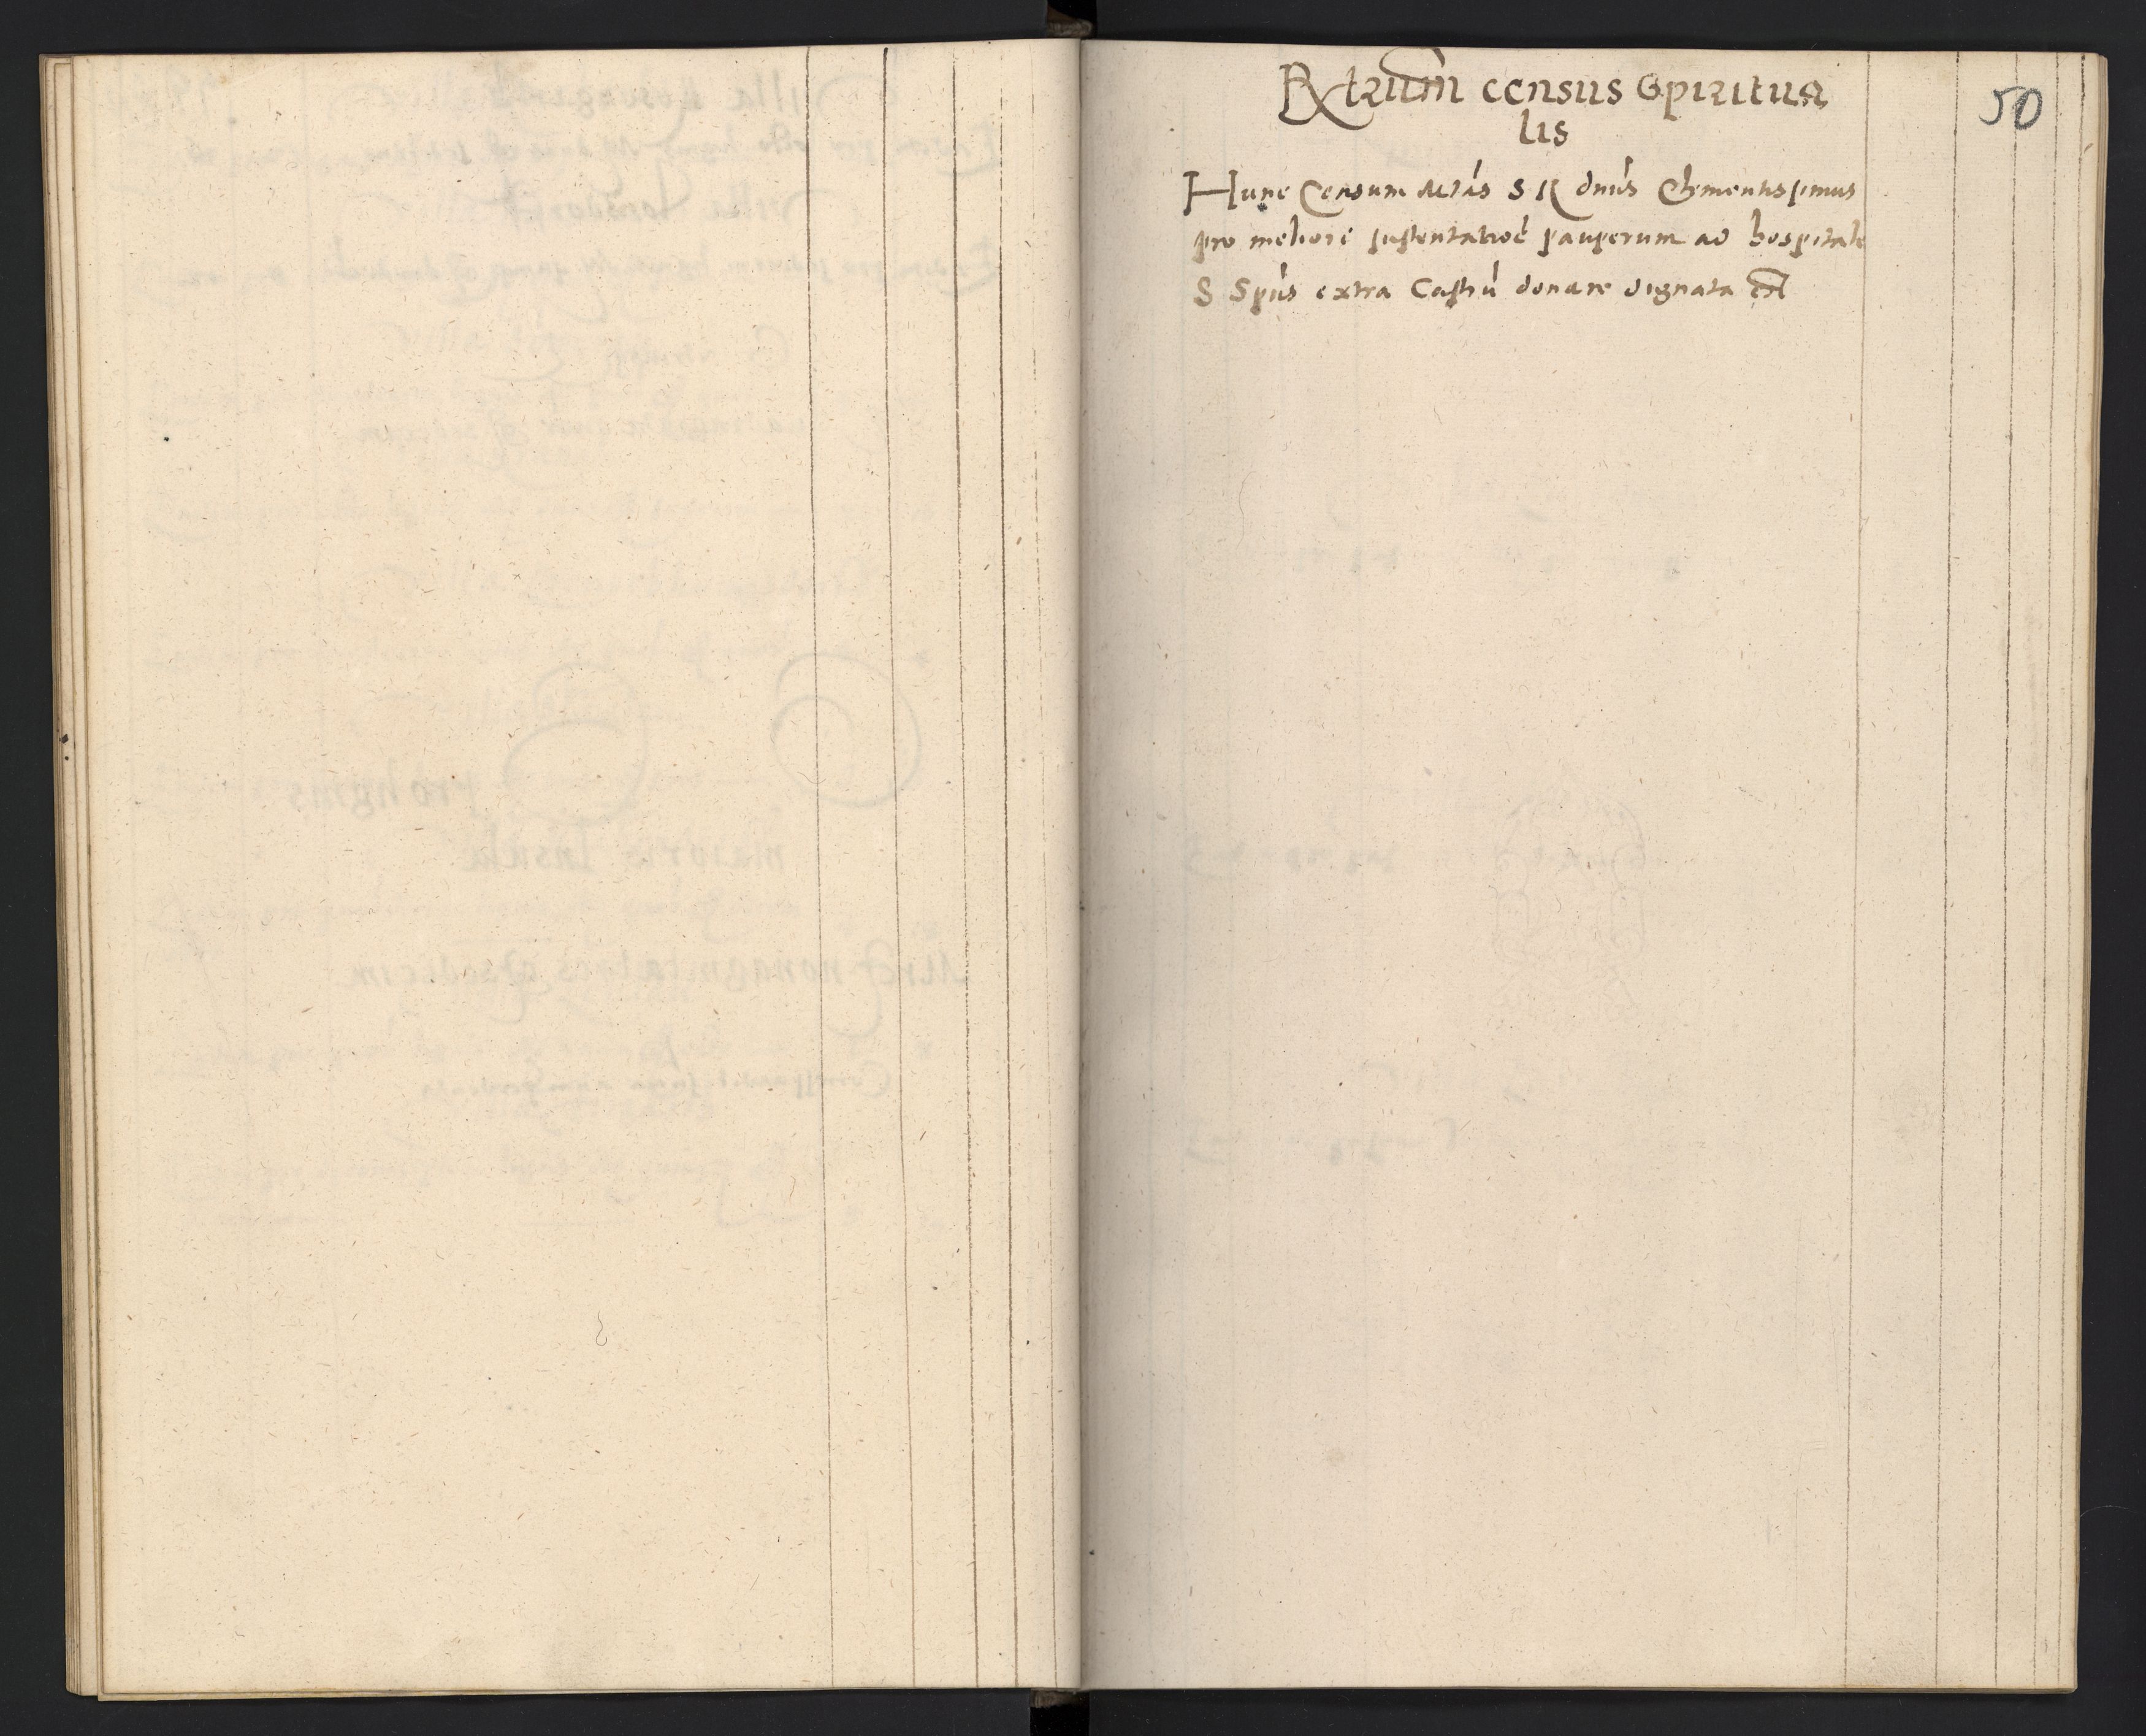 Rxtrium census Spiritua
lis
50
Hunc Censum Mtás S R dnús Clementissimus
pro meliori sustentatioé pauperum ad hospitale
S Spús extra Castrú donare dignata est